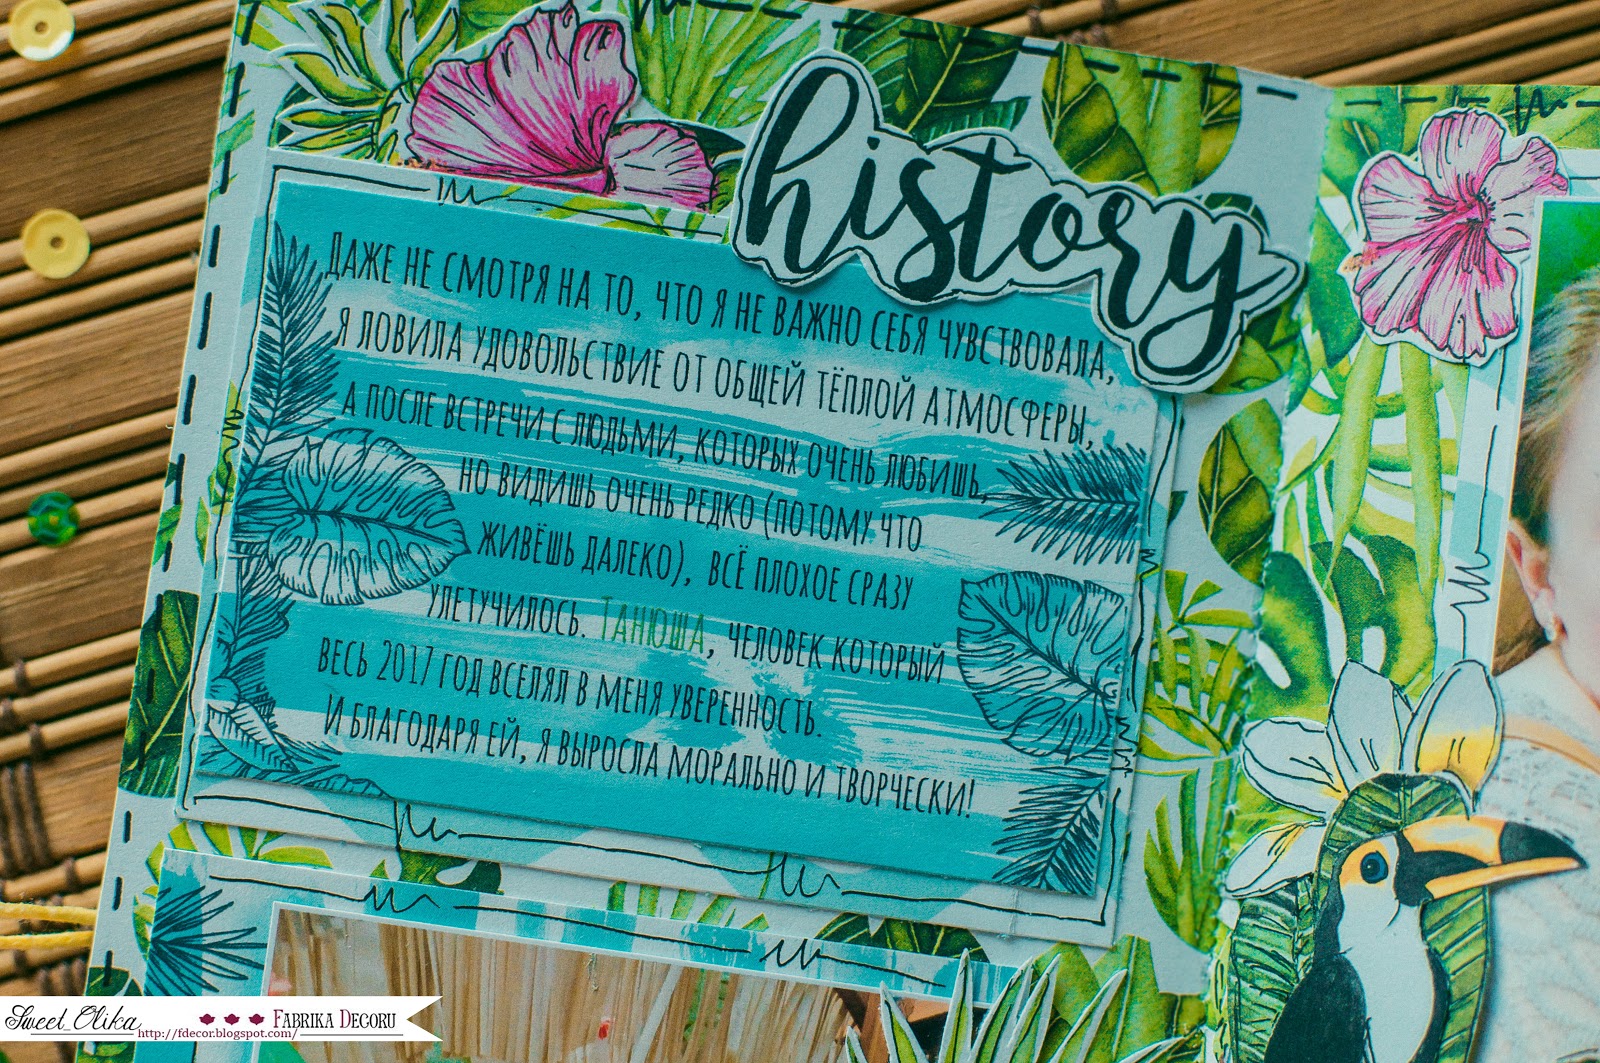 history
Даже не смотря на то, что я не важно себя чувствовала,
я ловила удовольствие от общей тёплой атмосферы,
а после встречи с людьми, которых очень любишь,
но видишь очень редко (потому что
живёшь далеко), всё плохое сразу
улетучилось. Танюша, человек который
весь 2017 год вселял в меня уверенность.
И благодаря ей, я выросла морально и творчески!
Sweet_Olika
Fabrika Decoru
http://fdecor.blogspot.com/